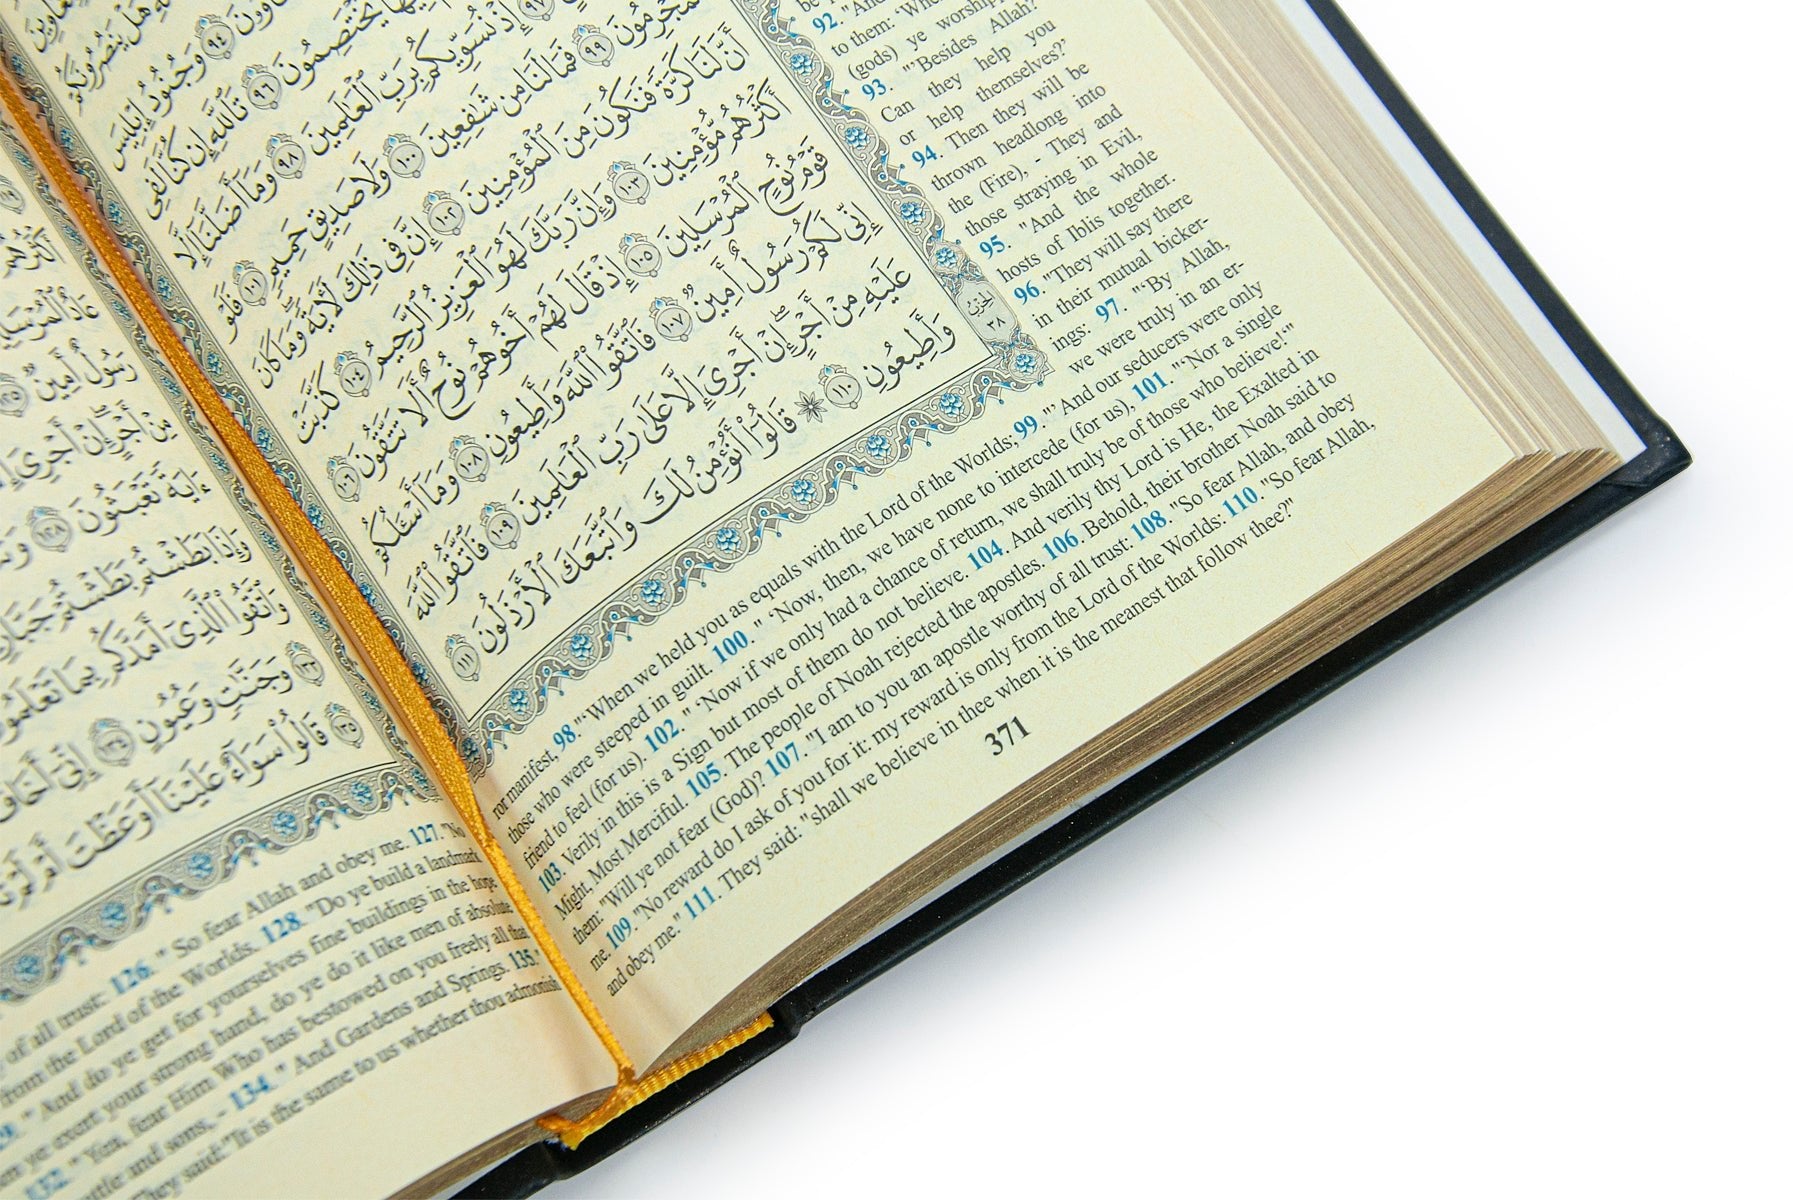 هَلْ يَنصُرُونَكُمْ
٩٤ وَجُنُودُ إِبْلِيسَ
يَخْتَصِمُونَ ٩٦ تَٱللَّهِ إِن كُنَّا لَفِى
٩٧ إِذْ نُسَوِّيكُم بِرَبِّ ٱلْعَـٰلَمِينَ ٩٨ وَمَآ أَضَلَّنَآ إِلَّا
ٱلْمُجْرِمُونَ ٩٩ فَمَا لَنَا مِن شَـٰفِعِينَ ١٠٠ وَلَا صَدِيقٍ حَمِيمٍ ١٠١ فَلَوْ
أَنَّ لَنَا كَرَّةً فَنَكُونَ مِنَ ٱلْمُؤْمِنِينَ ١٠٢ إِنَّ فِى ذَٰلِكَ لَـَٔايَةً ۖ وَمَا كَانَ
أَكْثَرُهُم مُّؤْمِنِينَ ١٠٣ وَإِنَّ رَبَّكَ لَهُوَ ٱلْعَزِيزُ ٱلرَّحِيمُ ١٠٤ كَذَّبَتْ
قَوْمُ نُوحٍ ٱلْمُرْسَلِينَ ١٠٥ إِذْ قَالَ لَهُمْ أَخُوهُمْ نُوحٌ أَلَا تَتَّقُونَ ١٠٦
إِنِّى لَكُمْ رَسُولٌ أَمِينٌ ١٠٧ فَٱتَّقُوا۟ ٱللَّهَ وَأَطِيعُونِ ١٠٨ وَمَآ أَسْـَٔلُكُمْ
عَلَيْهِ مِنْ أَجْرٍ ۖ إِنْ أَجْرِىَ إِلَّا عَلَىٰ رَبِّ ٱلْعَـٰلَمِينَ ١٠٩ فَٱتَّقُوا۟ ٱللَّهَ
وَأَطِيعُونِ ١١٠ ۞ قَالُوٓا۟ أَنُؤْمِنُ لَكَ وَٱتَّبَعَكَ ٱلْأَرْذَلُونَ ١١١
الحزب
٣٨
92. "And
to them: 'Where
(gods) ye worshipped
93. "'Besides Allah?
Can they help you
or help themselves?'
94. Then they will be
thrown headlong into
the (Fire), - They and
those straying in Evil,
95. "And the whole
hosts of Iblis together.
96. "They will say there
in their mutual bicker-
ings: 97. "'By Allah,
we were truly in an er-
ror manifest, 98. "'When we held you as equals with the Lord of the Worlds; 99. "' And our seducers were only
those who were steeped in guilt. 100. " 'Now, then, we have none to intercede (for us), 101. "'Nor a single
friend to feel (for us). 102. " 'Now if we only had a chance of return, we shall truly be of those who believe!'"
103. Verily in this is a Sign but most of them do not believe. 104. And verily thy Lord is He, the Exalted in
Might, Most Merciful. 105. The people of Noah rejected the apostles. 106. Behold, their brother Noah said to
them: "Will ye not fear (God)? 107. "I am to you an apostle worthy of all trust: 108. "So fear Allah, and obey
me. 109. "No reward do I ask of you for it: my reward is only from the Lord of the Worlds: 110. "So fear Allah,
and obey me." 111. They said: "shall we believe in thee when it is the meanest that follow thee?"
371
أَكْثَرُهُم
عَادٌ ٱلْمُرْسَلِينَ
رَسُولٌ أَمِينٌ ١٢٥
مِنْ أَجْرٍ ۖ إِنْ أَجْرِىَ
ءَايَةً تَعْبَثُونَ ١٢٨
وَإِذَا بَطَشْتُم بَطَشْتُمْ جَبَّارِينَ
وَٱتَّقُوا۟ ٱلَّذِىٓ أَمَدَّكُم بِمَا تَعْلَمُونَ
١٣٣ وَجَنَّـٰتٍ وَعُيُونٍ ١٣٤ إِنِّىٓ أَخَافُ
١٣٥ قَالُوا۟ سَوَآءٌ عَلَيْنَآ أَوَعَظْتَ أَمْ لَمْ
of all trust: 126. " So fear Allah and obey me. 127. "No
from the Lord of the Worlds. 128. "Do ye build a landmark
" And do ye get for yourselves fine buildings in the hope
ye exert your strong hand, do ye do it like men of absolute
132. " Yea, fear Him Who has bestowed on you freely all that
cattle and sons, - 134. " And Gardens and Springs. 135.
They said: "It is the same to us whether thou admonish